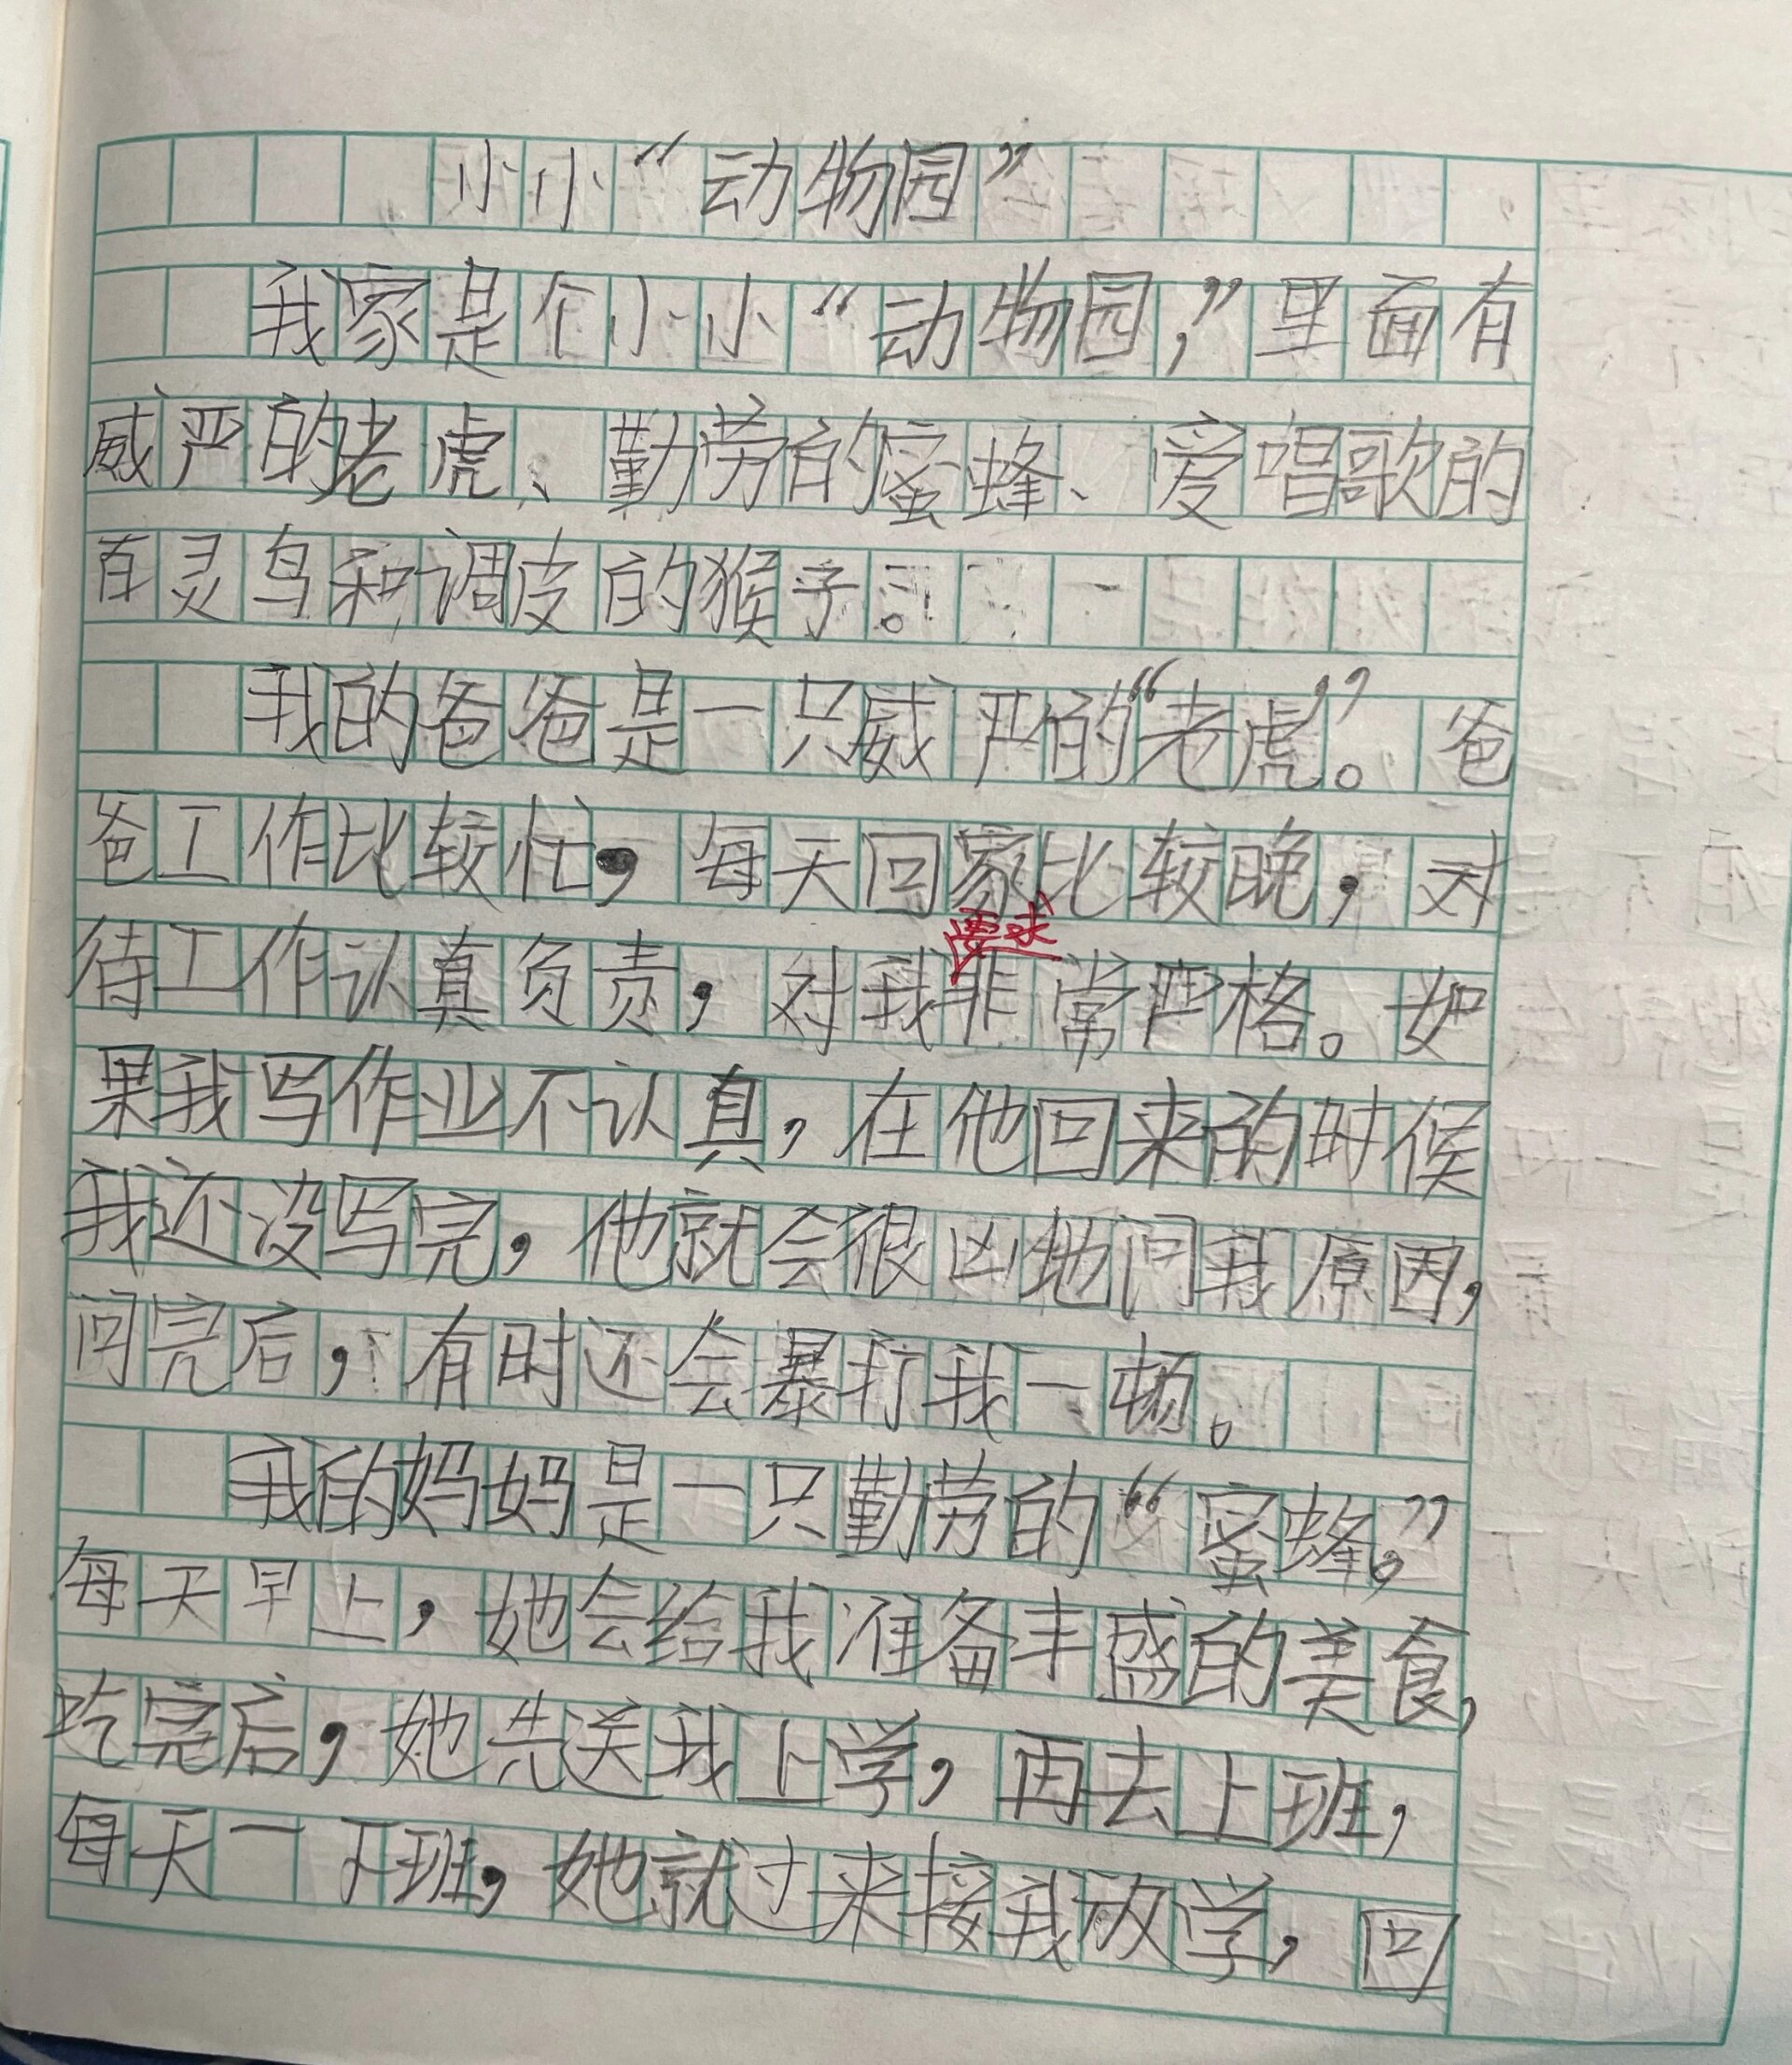 小小“动物园”
我家是个小小“动物园,”里面有
威严的老虎、勤劳的蜜蜂、爱唱歌的
百灵鸟和调皮的猴子。
我的爸爸是一只威严的“老虎”。爸
爸工作比较忙,每天回家比较晚,对
要求
待工作认真负责,对我非常严格。如
果我写作业不认真,在他回来的时候
我还没写完,他就会很凶地问我原因,
问完后,有时还会暴打我一顿。
我的妈妈是一只勤劳的“蜜蜂。”
每天早上,她会给我准备丰盛的美食,
吃完后,她先送我上学,再去上班,
每天一下班,她就过来接我放学,回